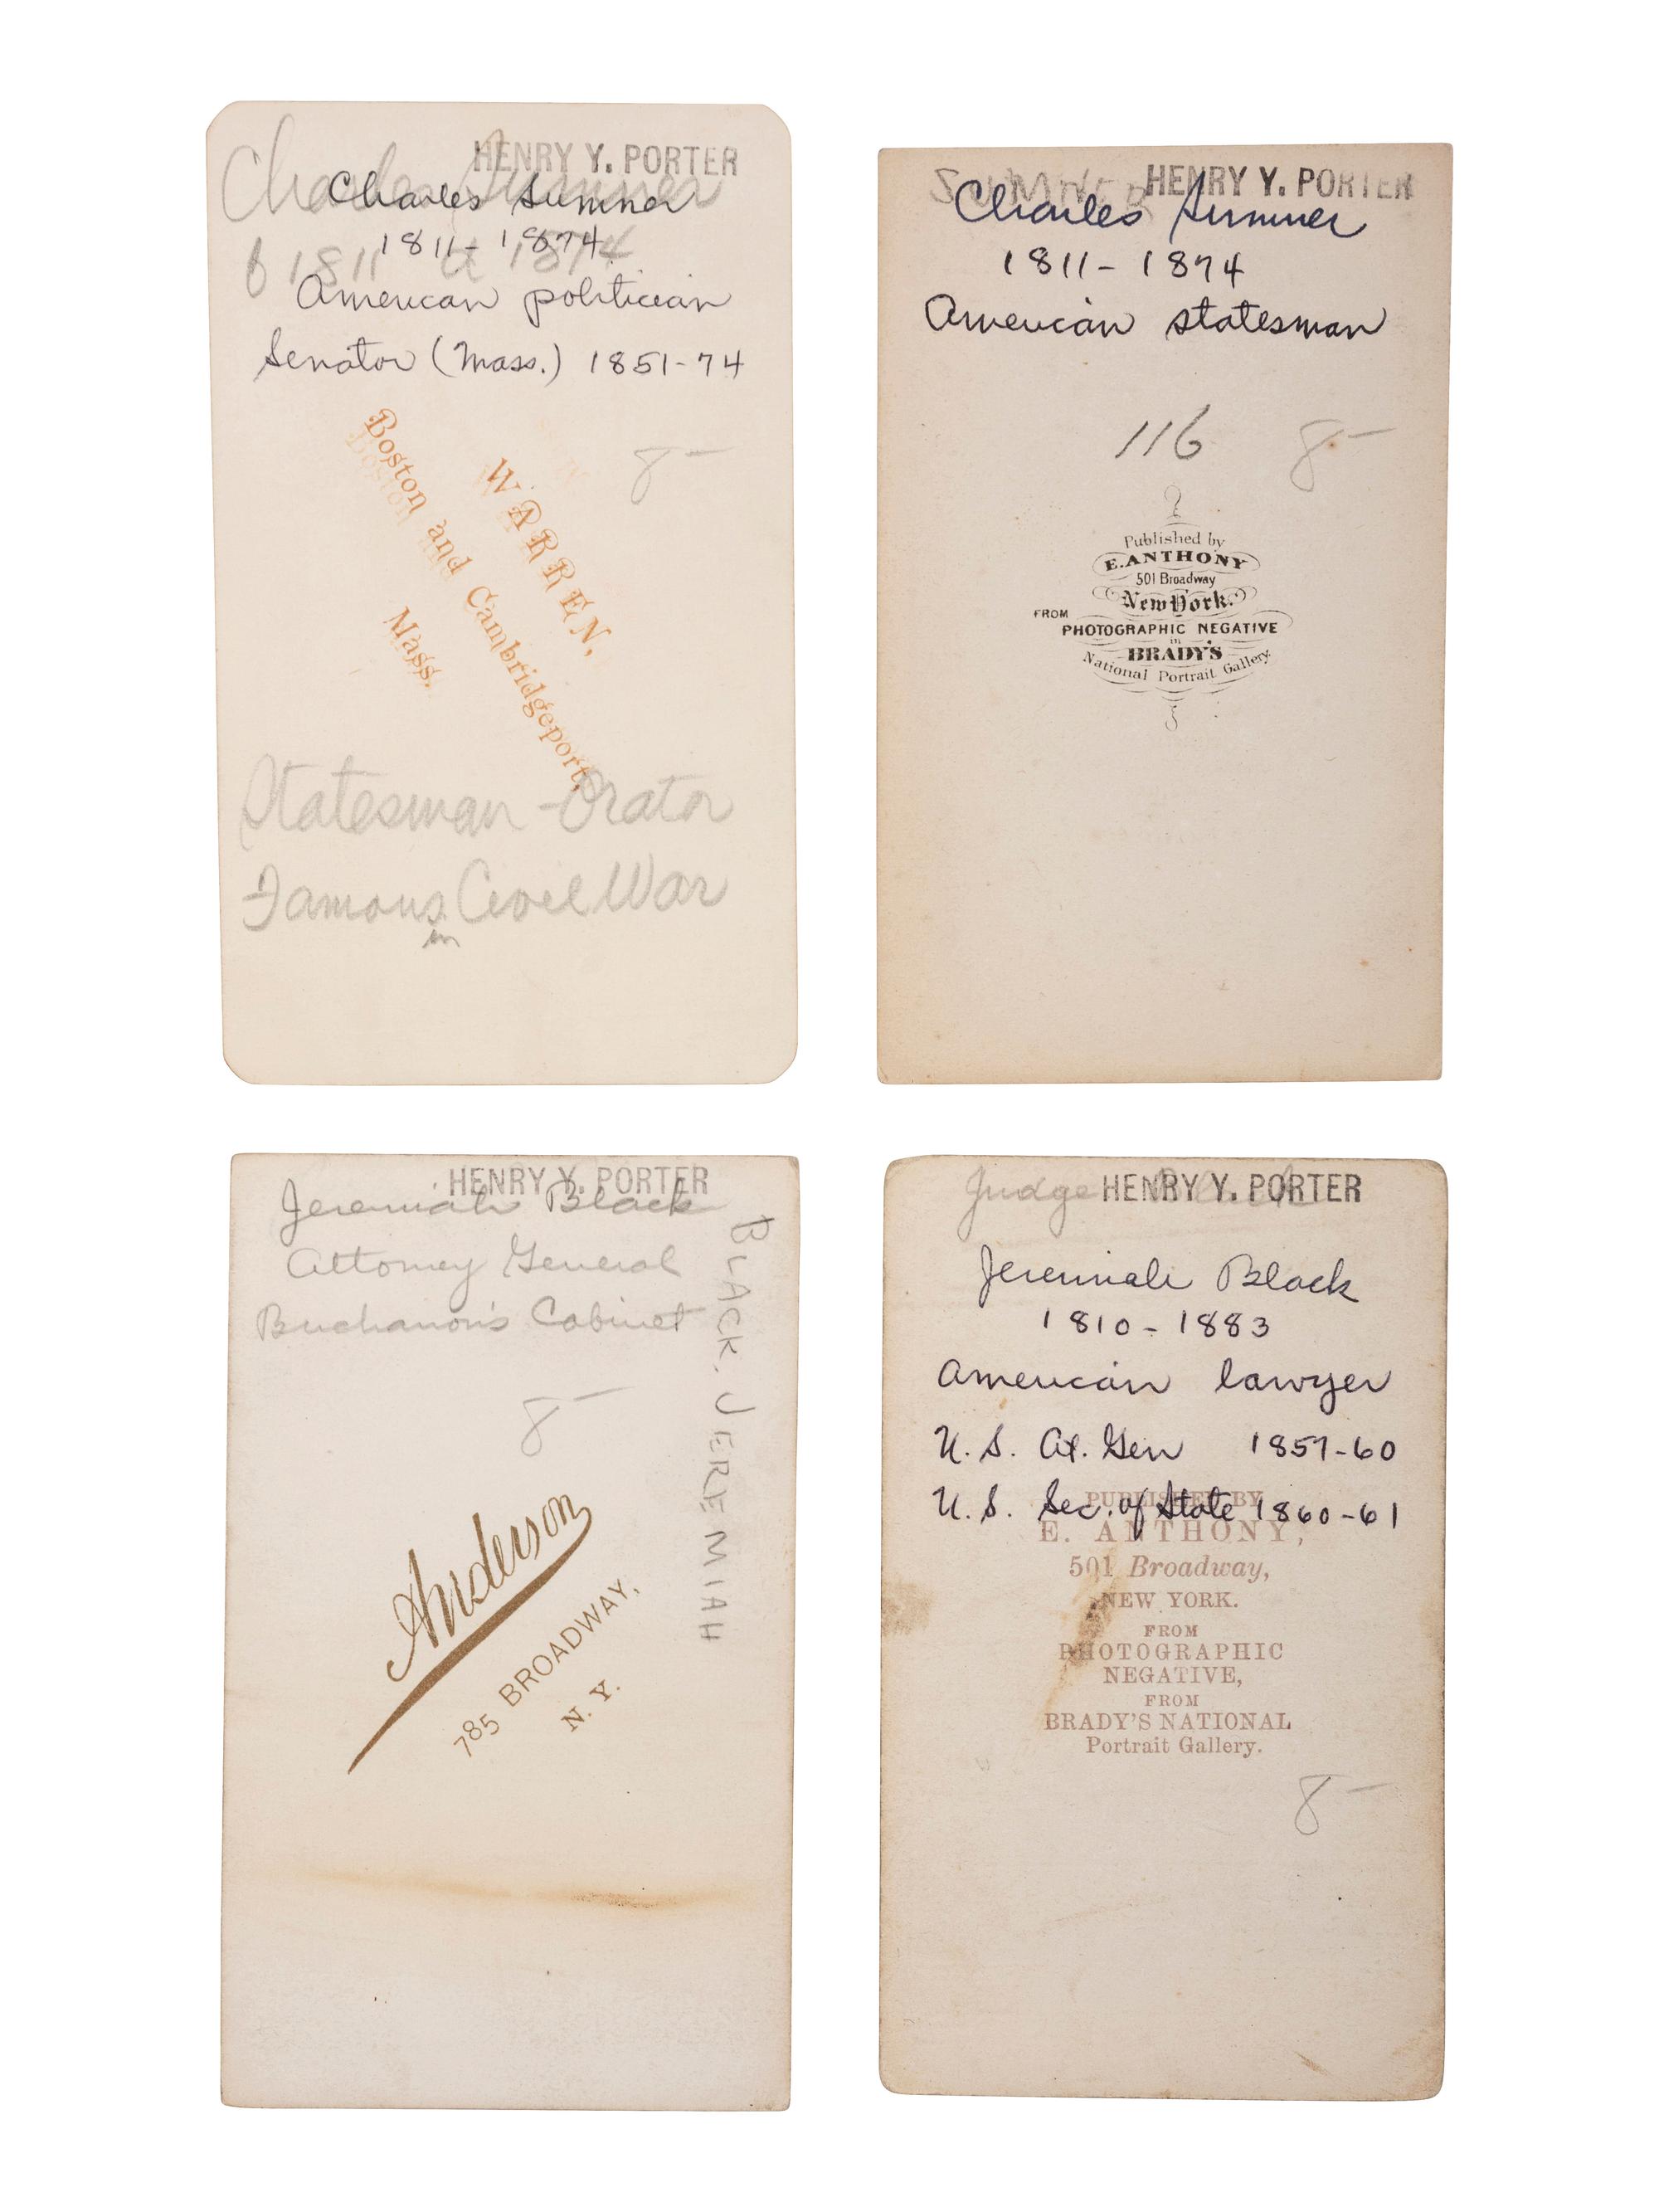 HENRY Y. PORTER
Charles Sumner
Charles Sumner
1811-1874
b 1811 d 1874
American politician
Senator (Mass.) 1851-74
8-
WARREN,
Boston and Cambridgeport,
Mass.
Statesman - Orator
Famous in Civil War
SUMNER
HENRY Y. PORTER
Charles Sumner
1811-1874
American statesman
116 8-
Published by
E. ANTHONY
501 Broadway
New York.
FROM
PHOTOGRAPHIC NEGATIVE
in
BRADY'S
National Portrait Gallery.
HENRY Y. PORTER
Jeremiah Black
Attorney General
Buchanan's Cabinet
BLACK, JEREMIAH
8-
Anderson
785 BROADWAY,
N. Y.
Judge Black
HENRY Y. PORTER
Jeremiah Black
1810-1883
American lawyer
U. S. At. Gen 1857-60
U. S. Sec. of State 1860-61
PUBLISHED BY
E. ANTHONY,
501 Broadway,
NEW YORK.
FROM
PHOTOGRAPHIC
NEGATIVE,
FROM
BRADY'S NATIONAL
Portrait Gallery.
8-